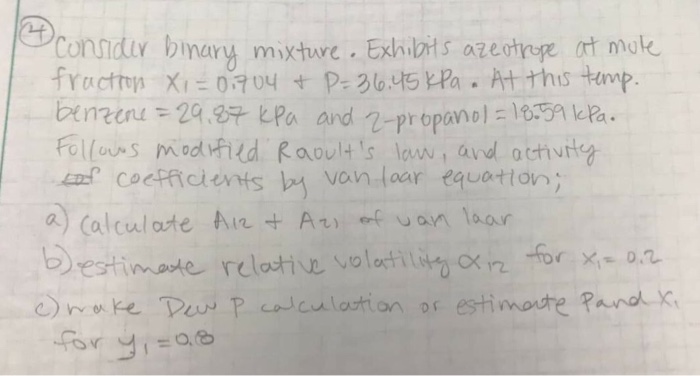 4 Consider binary mixture. Exhibits azeotrope at mole
fraction x₁ = 0.704 + P = 36.45 kPa. At this temp.
benzene = 29.87 kPa and 2-propanol = 18.59 kPa.
Follows modified Raoult's law, and activity
coefficients by van laar equation;
a) Calculate A12 + A21 of van laar
b) estimate relative volatility α12 for x₁ = 0.2
c) make Dew P calculation or estimate P and x₁
for y₁ = 0.8